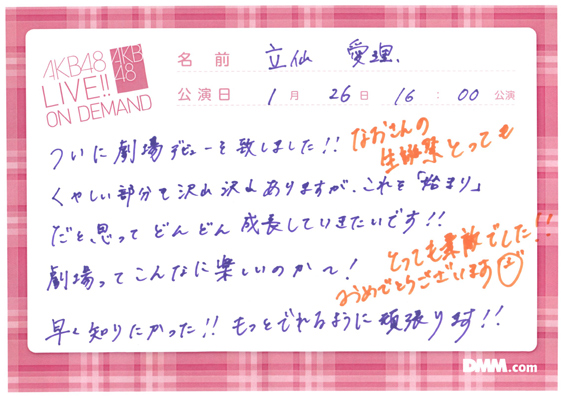 AKB48
LIVE!!
ON DEMAND
AKB
48
名前 立仙 愛理.
公演日 1月 26日 16:00 公演
ついに劇場デビューを致しました!!
なおさんの
生誕祭とっても
くやしい部分も沢山沢山ありますが、これを「始まり」
だと思ってどんどん成長していきたいです!!
とっても素敵でした!!
おめでとうございます
劇場ってこんなに楽しいのかー!
早く知りたかった!!もっとでれるように頑張ります!!
DMM.com